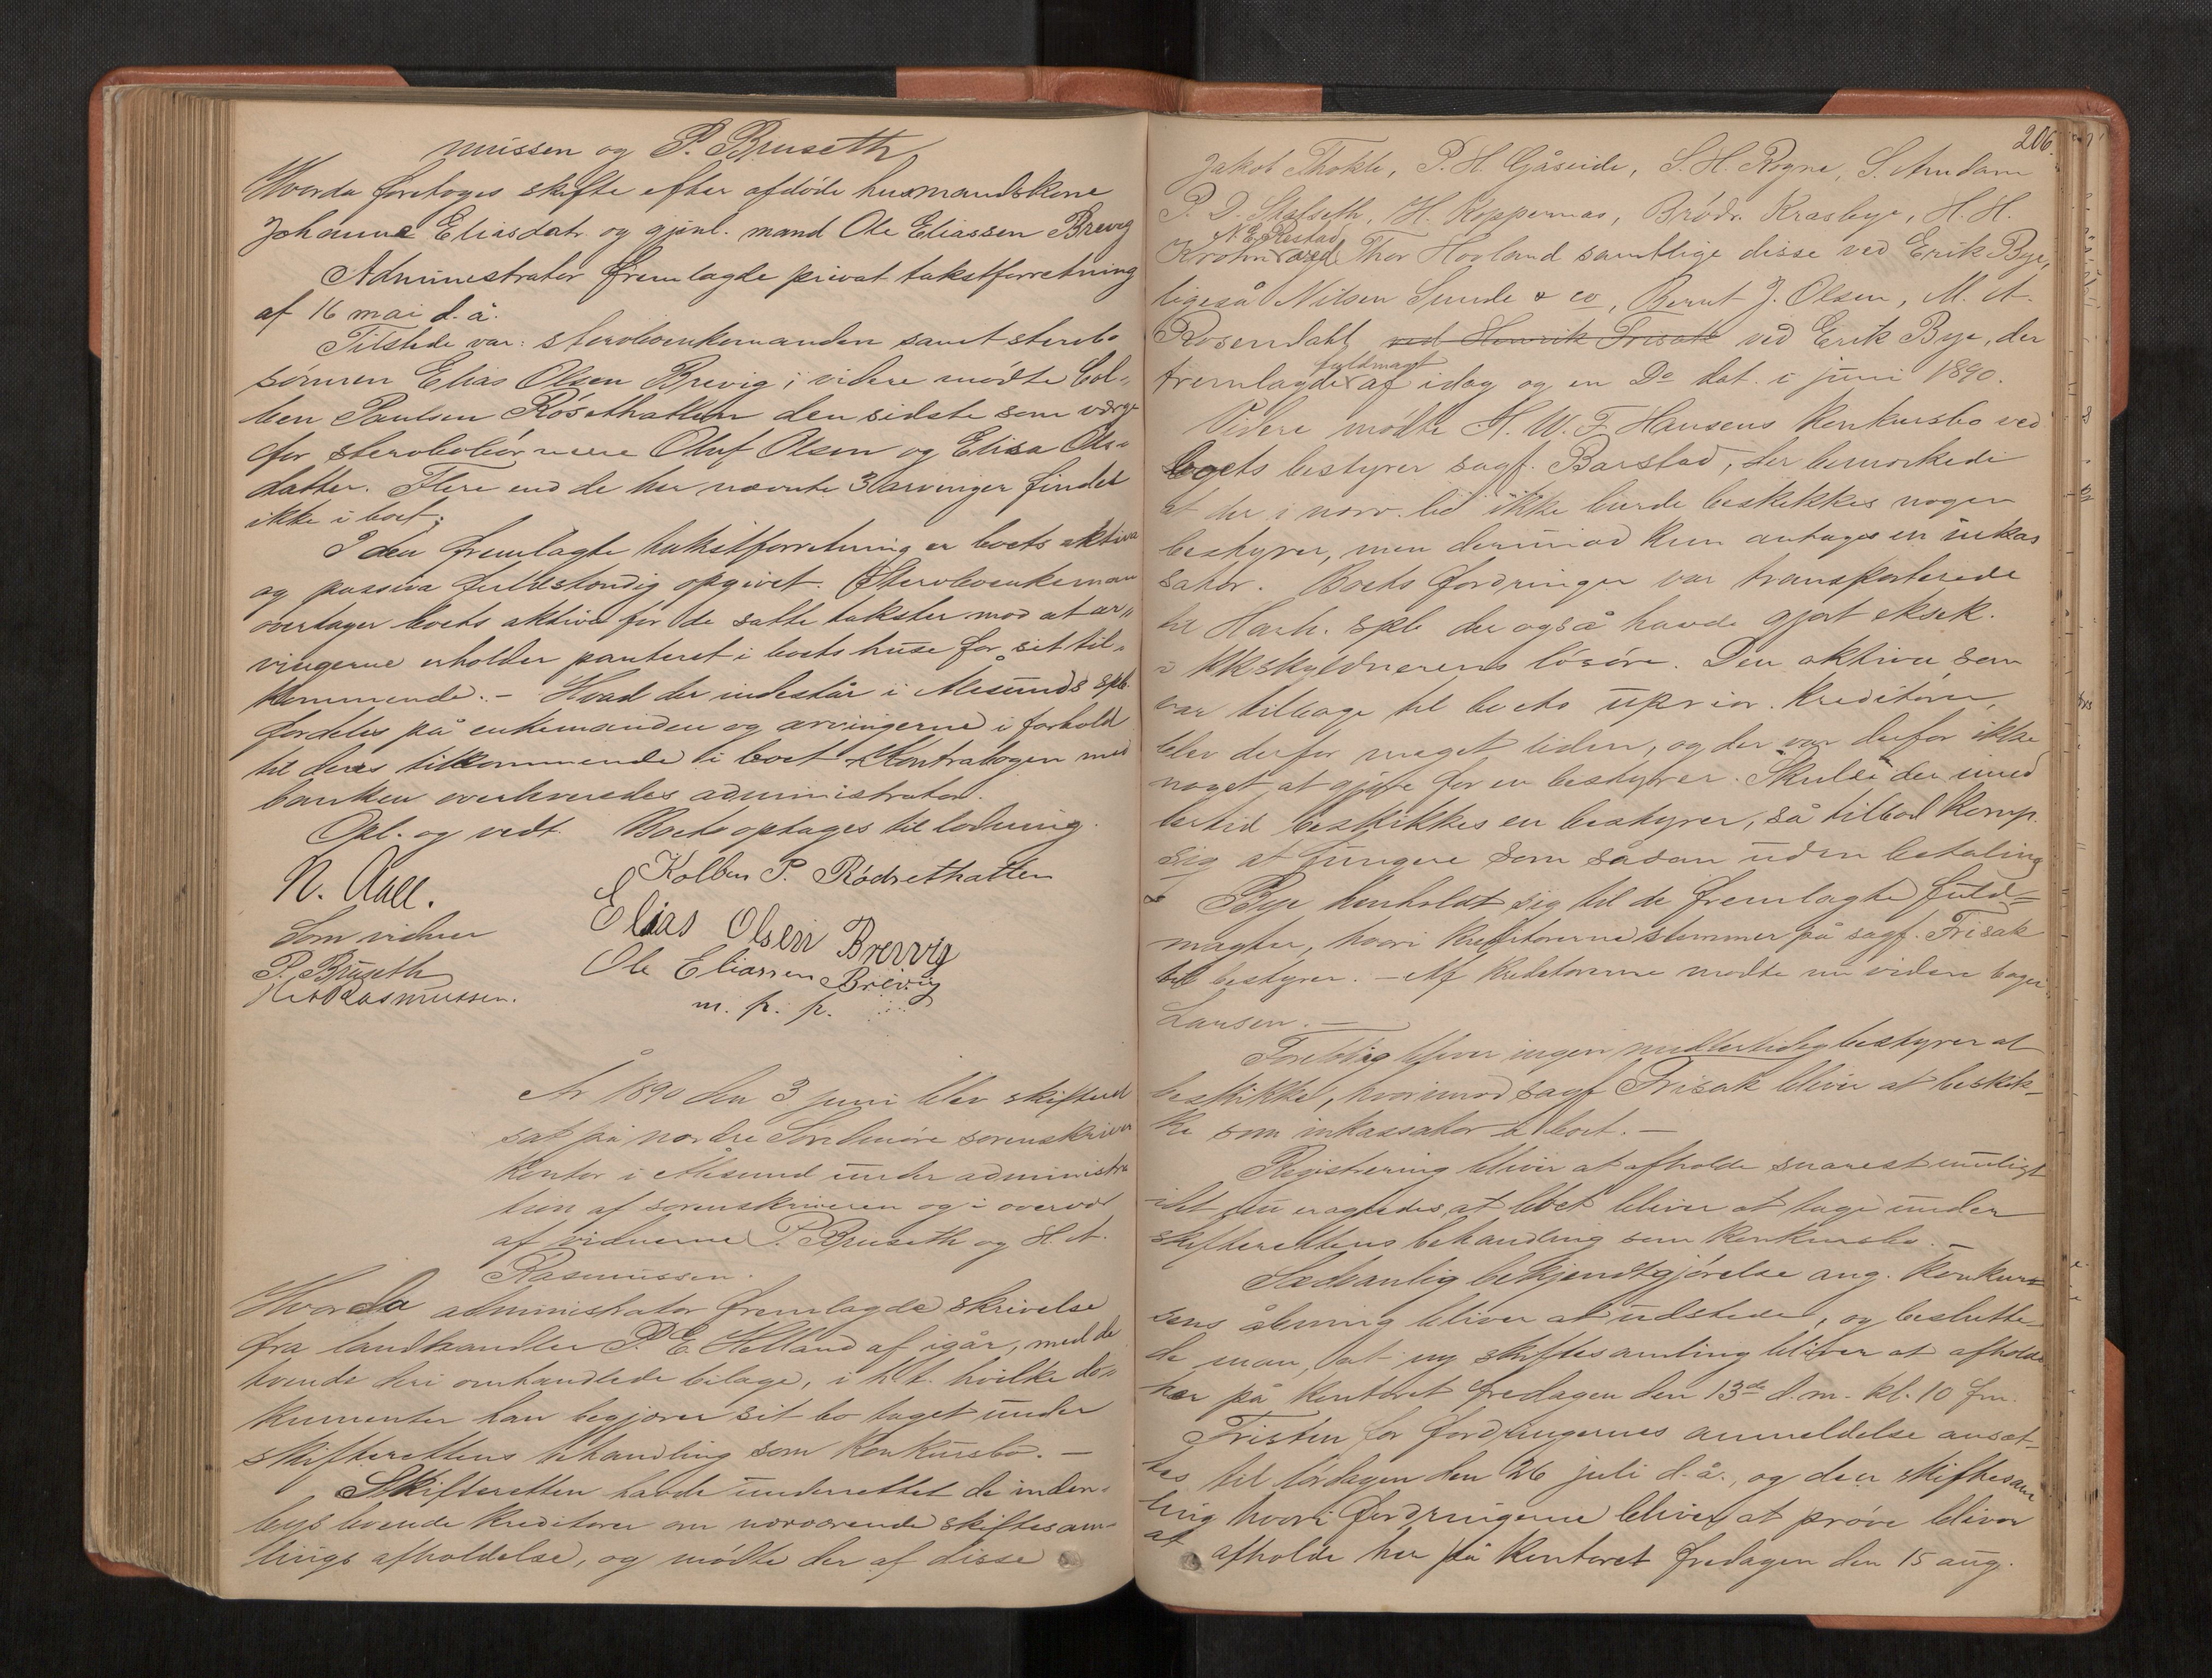 mussen og P. Bruseth
Hvorda foretoges skifte efter afdøde husmandskone
Johanne Eliasdatr. og gjenl. mand Ole Eliassen Brevig
Administrator fremlagde privat takstforretning
af 16 mai d. å.
Tilstede var: sterboenkemanden samt sterbo
sønnen Elias Olsen Brevig; videre mødte Col„
ben Paulsen Røsethatlen den sidste som værge
for sterboets Oluf Olsen og Elisa Ols„
datter. Flere end de her nævnte 3 arvinger findes
ikke i boet.
I den fremlagte takstforretning er boets aktiva
og passiva fuldstændig opgivet. Sterboenkeman
overtager boets aktiva for de satte takster mod at ar„
vingerne erholder panteret i boets huse for sit til„
kommende. – Hvad der indestår i Ålesunds spb.
fordeles på enkemanden og arvingerne i forhold
til deres tilkommende i boet. Kontrabogen med
banken overleveredes administrator.
Opl. og vedt. Boet optages til lodning.
N. Aall. Kolben P. Rødsethatlen
Som vidner Elias Olsen Brevig
P. Bruseth Ole Eliassen Brevig
H A Rasmussen. m. p. p.
År 1890 den 3 juni blev skifteret
sat på nordre Søndmøre sorenskriver
kontor i Ålesund under administra
tion af sorenskriveren og i overvær
af vidnerne P. Bruseth og H. A.
Rasmussen.
Hvorda administrator fremlagde skrivelse
fra landhandler P. E. Helland af igår, med de
hvende deri omhandlede bilage, i h. t. hvilke do„
kumenter han begjærer sit bo taget under
skifterettens behandling som konkursbo. –
Skifteretten havde underrettet de inden„
bys boende kreditorer om nærværende skiftesam„
lings afholdelse, og mødte der af disse
206.
Jakob Thokle, P. H. Gåseide, S. H. Rogne, S. Amdam
P. D. Stafseth, H. Koppernæs, Brødr. Krasbye, H. H.
N. E. Restad
Krohn og Thor Hovland samtlige disse ved Erik Bye,
ligeså Nilsen Sunde & co, Bernt J. Olsen, M. A.
Rosendahl ved Henrik Frisak ved Erik Bye, der
fuldmagt
fremlagde af idag og en Do dat. i juni 1890.
Videre mødte H. W. F. Hansens konkursbo ved
boets bestyrer sagf. Barstad, der bemærkede
at der i nærv. bo ikke burde beskikkes nogen
bestyrer, men derimod kun antages en inkas
sator. Boets fordringer var transporterede
til Harh. spb der også havde gjort eksek.
i skyldnerens løsøre. Den aktiva, som
var tilbage til boets uprior. kreditorer,
blev derfor meget liden, og der var derfor ikke
noget at gjøre for en bestyrer. Skulde der imid
lertid beskikkes en bestyrer, så tilbød komp.
sig at fungere som sådan uden betaling
Bye henholdt sig til de fremlagte fuld=
magter, hvori kreditorerne stemmer på sagf. Frisak
til bestyrer. – Af kreditorerne mødte nu videre bager
Larsen. –
Foreløbig bliver ingen midlertidig bestyrer at
beskikke, hvorimod sagf. Frisak bliver at beskik=
ke som inkassator i boet. –
Registrering bliver at afholde snarest muligt
idet nu eragtedes, at boet bliver at tage under
skifterettens behandling som konkursbo. –
Sædvanlig bekjendtgjørelse ang. konkur=
sens åbning bliver at udstede, og beslutte=
de man, at ny skiftesamling bliver at afholde
her på kontoret fredagen den 13de d. m. kl. 10 fm.
Fristen for fordringernes anmeldelse ansæt=
tes til lørdagen den 26 juli d. å., og den skiftesam
ling hvori fordringerne bliver at prøve bliver
at afholde her på kontoret fredagen den 15 aug.